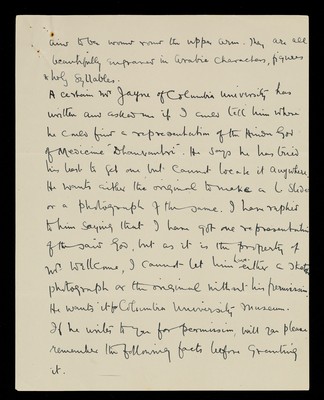 and to be worn round the upper arm. They are all
beautifully engraved in Arabic characters, figures
& holy syllables.
A certain Mr Jayne of Columbia University has
written and asked me if I could tell him where
he could find a representation of the Hindu God
of Medicine "Dhanvantri". He says he has tried
his best to get one but cannot locate it anywhere.
He wants either the original to make a L. Slide
or a photograph of the same. I have replied
to him saying that I have got one representation
of the said God, but as it is the property of
Mr Wellcome, I cannot let him have either a sketch
photograph or the original without his permission
He wants it for Columbia University Museum.
If he writes to you for permission, will you please
remember the following facts before granting
it.